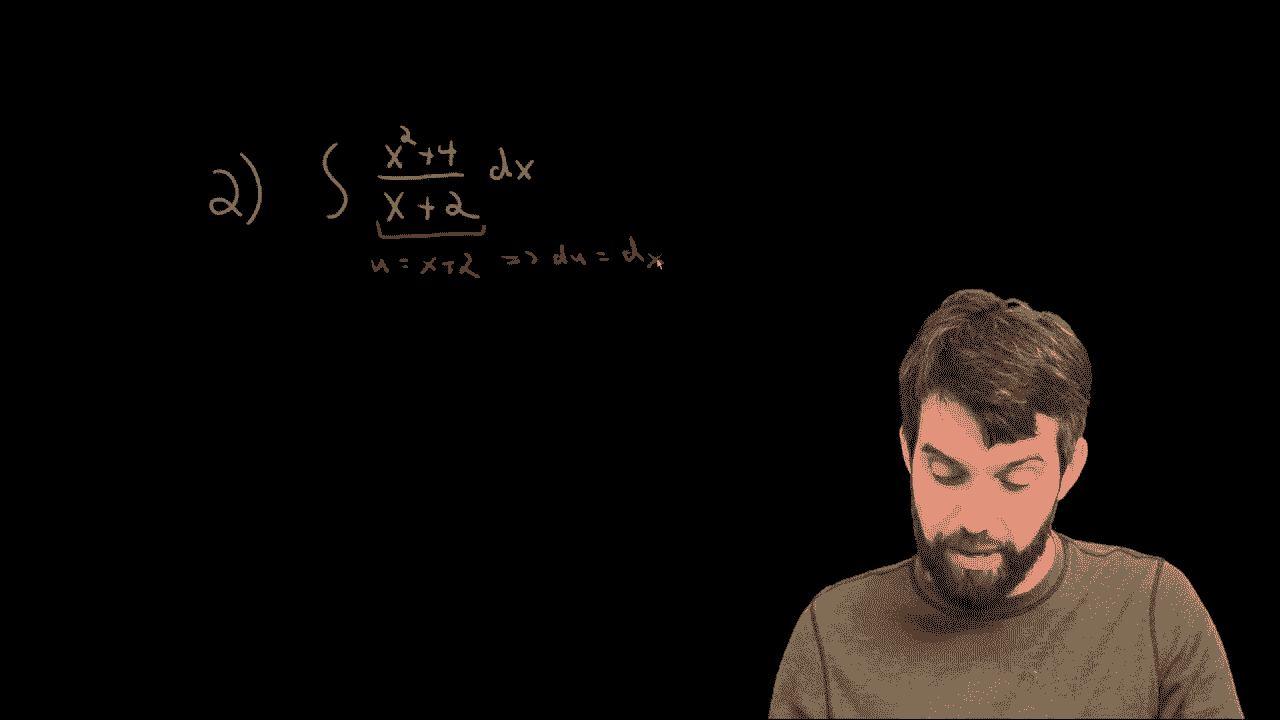 2) ∫ (x²+4)/(x+2) dx
u = x+2 => du = dx